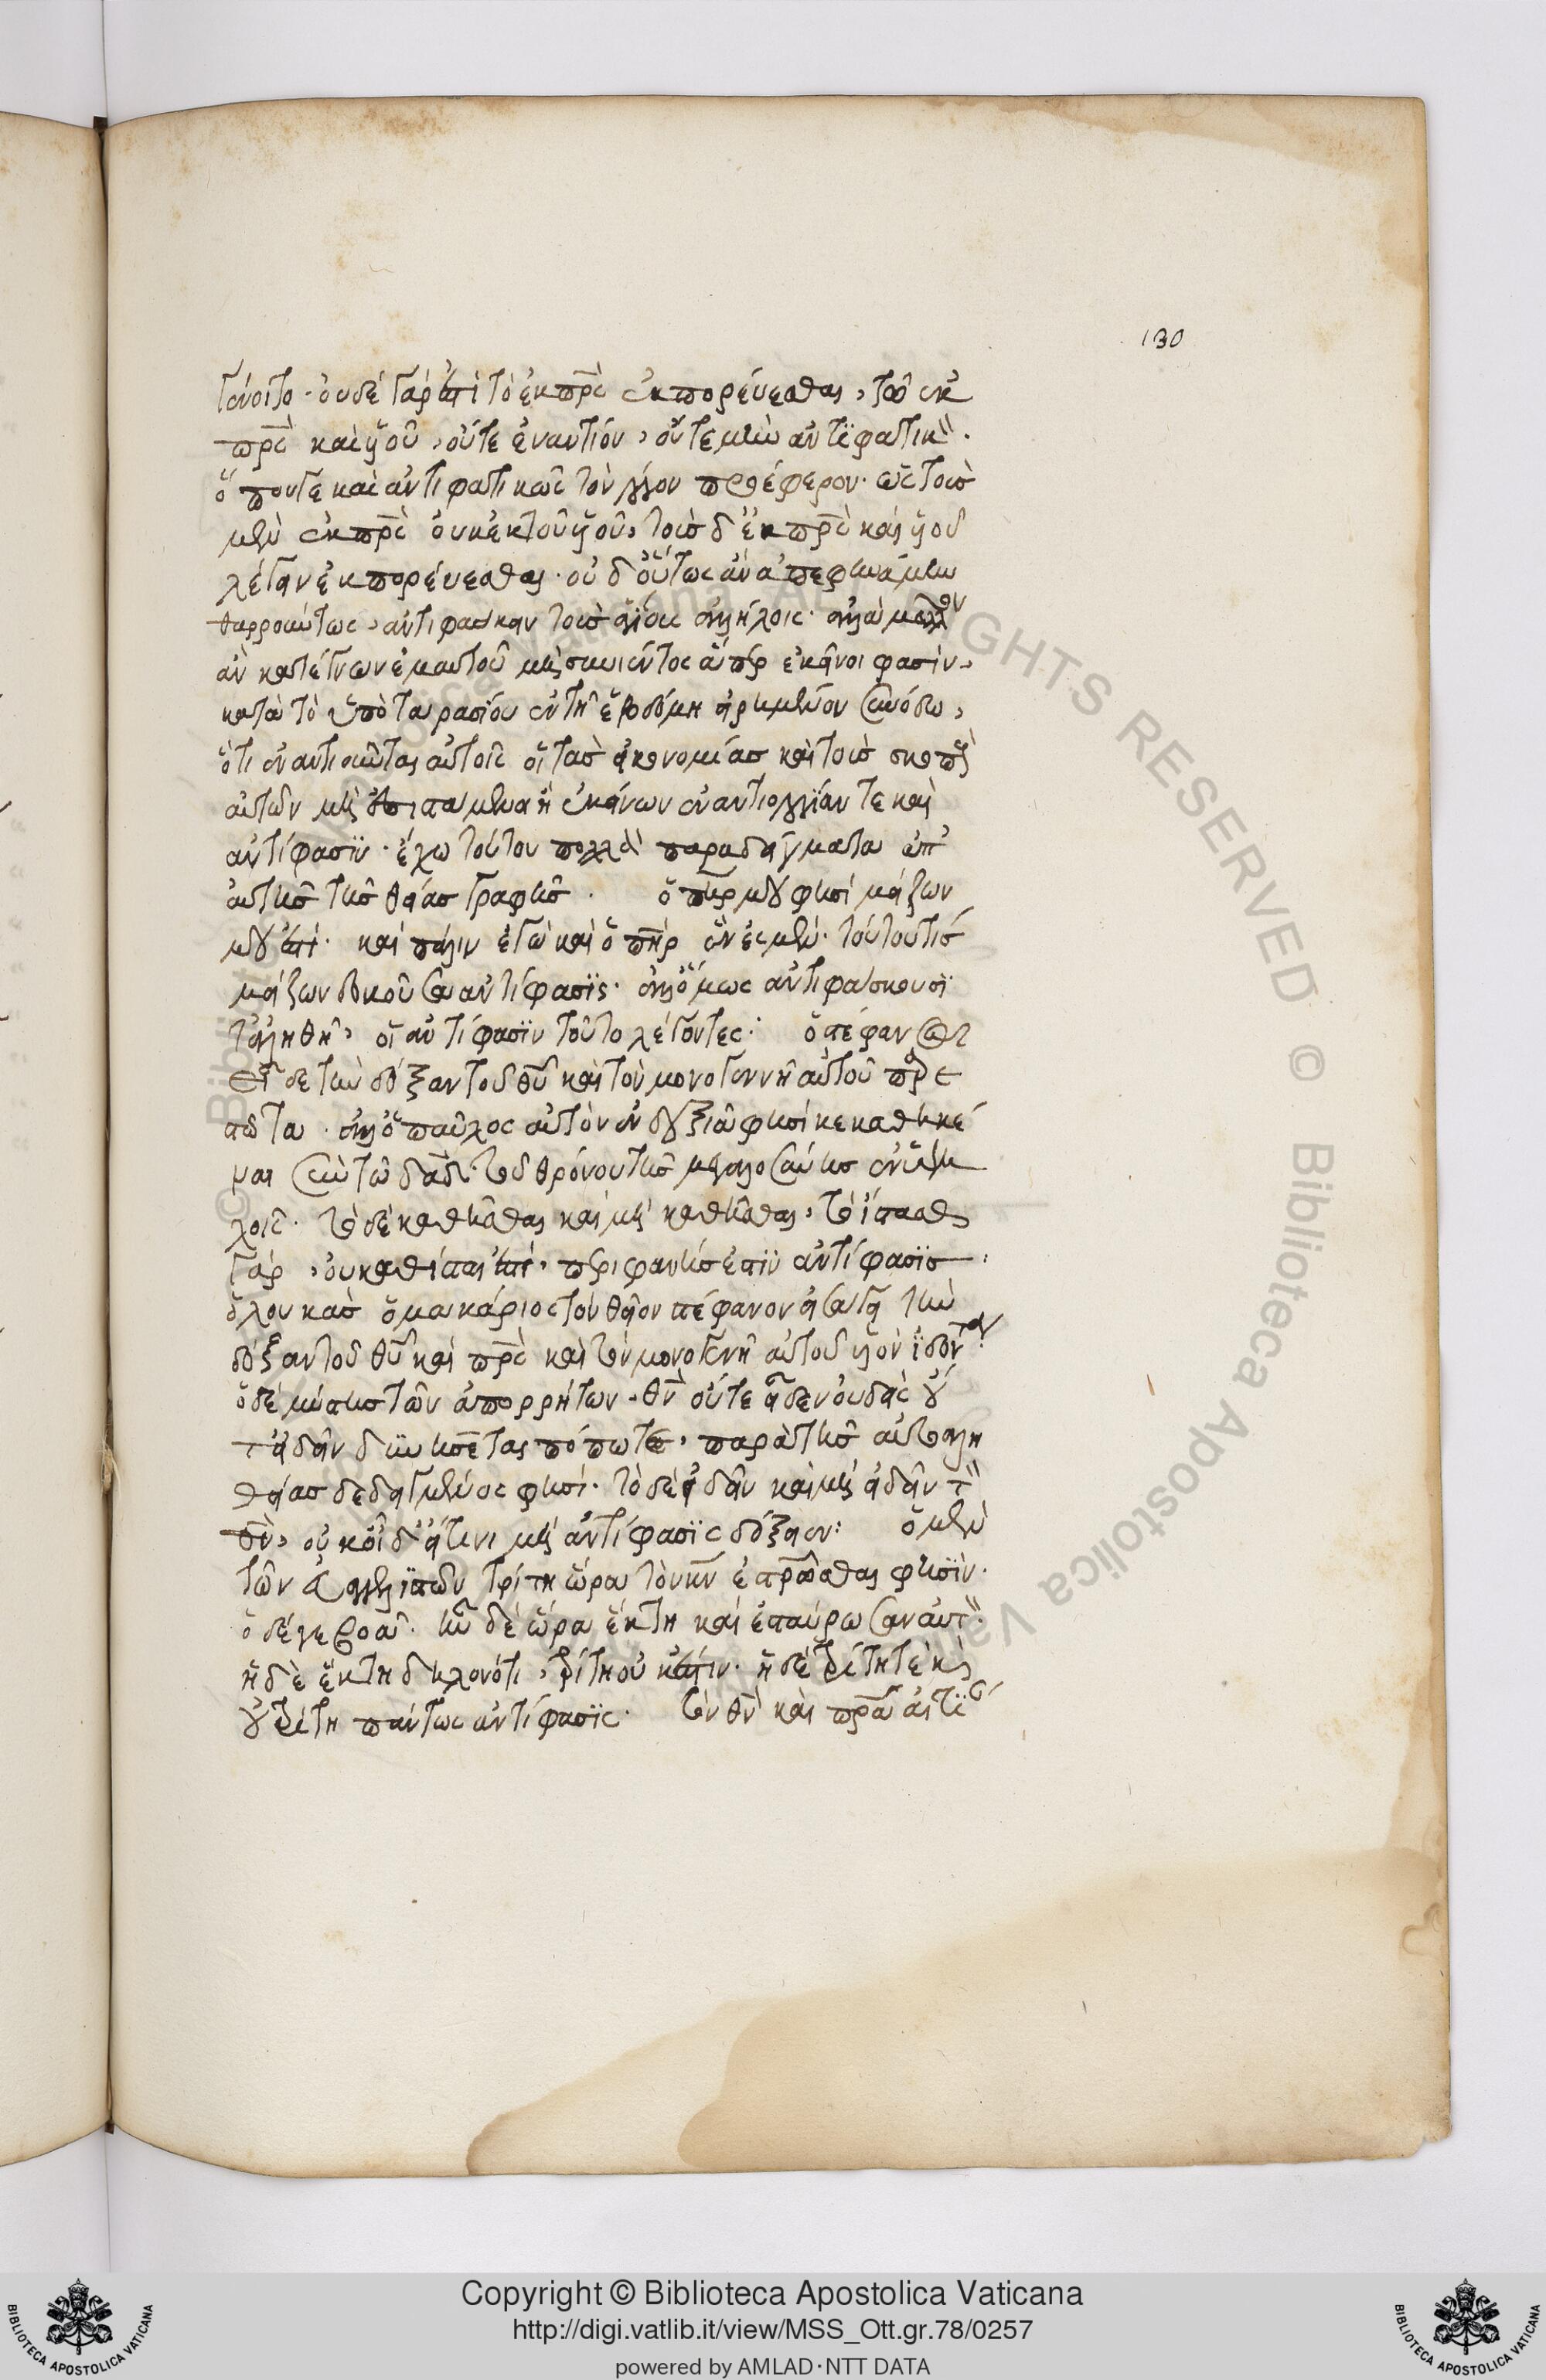 130
γένοιτο· οὐδὲ γάρ ἐστι τὸ ἐκ πρ̅ς̅ ἐκπορεύεσθαι, τῶ ἐκ
πρ̅ς̅ καὶ υ̅ο̅υ̅, οὔτε ἐναντίον, οὔτε μὴν ἀντιφατικ
ὅπουγε καὶ ἀντιφατικῶς τὸν λόγον προέφερον· ὡς τοῖς
μὲν ἐκ πρ̅ς̅ οὐκ ἐκ τοῦ υ̅ο̅υ̅, τοῖς δ' ἐκ πρ̅ς̅ καὶ υ̅ο̅υ̅
λέγειν ἐκπορεύεσθαι· οὐδ' οὕτως ἂν ἀπεφηνάμην
θαρρούντως, ἀντιφάσκειν τοὺς ἁγίους ἀλλήλοις· ἀλλὰ μᾶλλον
ἂν κατέγνων ἐμαυτοῦ μὴ συνιέντος ἅπερ ἐκεῖνοι φασὶν,
κατὰ τὸ ὑπὸ Ταρασίου ἐν τῆ ἑβδόμη εἰρημένον συνόδω,
ὅτι ἐναντιοῦνται αὐτοῖς οἱ τὰς οἰκονομίας καὶ τοὺς σκοποὺς
αὐτῶν μὴ ἐπιστάμενοι ἢ ἐκείνων ἐναντιολογίαν τε καὶ
ἀντίφασιν· ἔχω τούτου πολλὰ παραδείγματα ἀπ'
αὐτῆς τῆς θείας γραφῆς· ὁ π̅η̅ρ̅ μου φησί μείζων
μου ἐστί· καὶ πάλιν ἐγὼ καὶ ὁ π̅η̅ρ̅ ἕν ἐσμεν· τούτου τίς
μείζων δοκοῦσα ἀντίφασις· ἀλλ' ὅμως ἀντιφάσκουσι
τἀληθῆ, οἱ ἀντίφασιν τοῦτο λέγοντες· ὁ Στέφανος
εἶδε τὴν δόξαν τοῦ θ̅υ̅ καὶ τὸν μονογενῆ αὐτοῦ
στῶτα· ἀλλ' ὁ Παῦλος αὐτὸν ἐν δεξιᾶ φησί κεκαθηκέ
ναι τοῦ θρόνου τῆς μεγαλοσύνης ἐν ὑψη
λοῖς· τὸ δὲ καθῆσθαι καὶ μὴ καθῆσθαι, τὸ ἵστασθαι
γὰρ, οὐ καθίσαι ἐστί, περιφανής ἐστιν ἀντίφασις
ὁ Λουκᾶς ὁ μακάριος τὸν θεῖον Στέφανον εἰσάγει τὴν
δόξαν τοῦ θ̅υ̅ καὶ π̅ρ̅ς̅ καὶ τὸν μονογενῆ αὐτοῦ υ̅ο̅ν̅ ἰδόντα
ὁ δὲ μύστης τῶν ἀπορρήτων, θ̅ν̅ οὔτε εἶδεν οὐδεὶς οὔ
τ' ἰδεῖν δυνήσεται πώποτε, παρὰ τῆς αὐτοαλη
θείας δεδειγμένος φησί· τὸ δὲ ἰδεῖν καὶ μὴ ἰδεῖν τ
θ̅ν̅, οὐκ οἶδ' εἴ τινι μὴ ἀντίφασις δόξειεν: ὁ μὲν
τῶν εὐαγγελιστῶν τρίτη ὥρα τὸν κ̅ν̅ ἐστρῶσθαι φησίν·
ὁ δέ γε βοᾶ· ἦν δὲ ὥρα ἕκτη καὶ ἐσταύρωσαν αὐτ
ἡ δὲ ἕκτη δηλονότι, τρίτη οὐκ ἔστιν· ἡ δὲ τρίτη τε καὶ
οὐ τρίτη πάντως ἀντίφασις· τὸν θ̅ν̅ καὶ π̅ρ̅α̅
Copyright © Biblioteca Apostolica Vaticana
http://digi.vatlib.it/view/MSS_Ott.gr.78/0257
powered by AMLAD·NTT DATA
BIBLIOTECA APOSTOLICA VATICANA
BIBLIOTECA APOSTOLICA VATICANA
© Biblioteca Apostolica Vaticana ALL RIGHTS RESERVED © Biblioteca Apostolica Vaticana